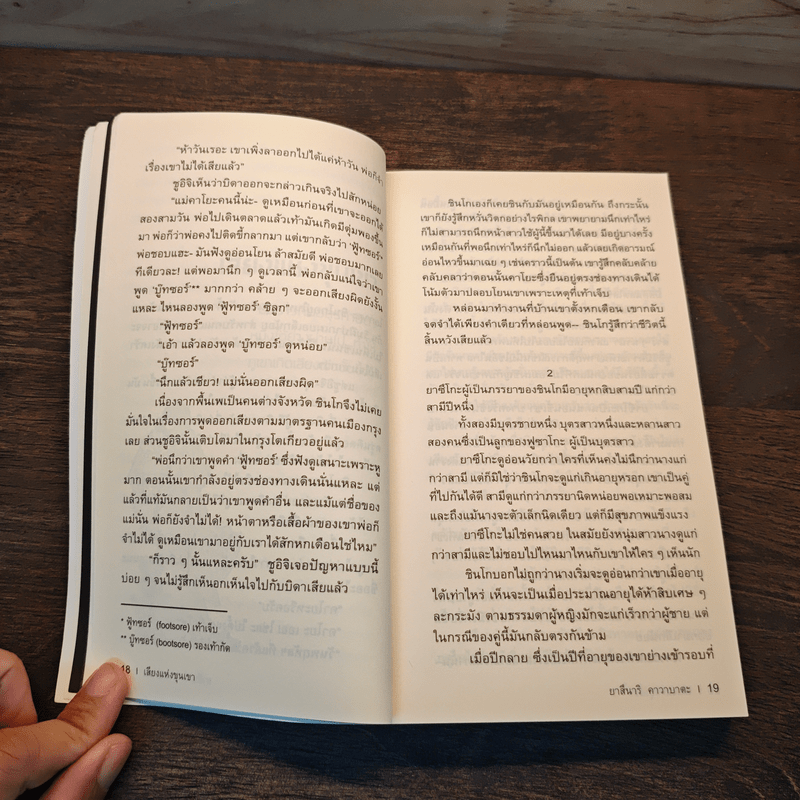 "ห้าวันเรอะ เขาเพิ่งลาออกไปได้แค่ห้าวัน พ่อก็จำ
เรื่องเขาไม่ได้เสียแล้ว"
ชูอิจิเห็นว่าบิดาออกจะกล่าวเกินจริงไปสักหน่อย
"แม่คาโยะคนนี้น่ะ- ดูเหมือนก่อนที่เขาจะออกได้
สองสามวัน พ่อไปเดินตลาดแล้วเท้ามันเกิดมีตุ่มพองขึ้น
มา พ่อก็ว่าพ่อคงไปติดขี้กลากมา แต่เขากลับว่า 'ฟุ้ทซอร์'
พ่อชอบแฮะ- มันฟังดูอ่อนโยน ล้าสมัยดี พ่อชอบมากเลย
ทีเดียวละ! แต่พอมานึก ๆ ดูเวลานี้ พ่อกลับแน่ใจว่าเขา
พูด 'บู๊ทซอร์'** มากกว่า คล้าย ๆ จะออกเสียงผิดยังงั้น
แหละ ไหนลองพูด 'ฟุ้ทซอร์' ซิลูก"
"ฟุ้ทซอร์"
"เอ้า แล้วลองพูด 'บู๊ทซอร์' ดูหน่อย"
"บู๊ทซอร์"
"นึกแล้วเชียว! แม่นั่นออกเสียงผิด"
เนื่องจากพื้นเพเป็นคนต่างจังหวัด ชินโกจึงไม่เคย
มั่นใจในเรื่องการพูดออกเสียงตามมาตรฐานคนเมืองกรุง
เลย ส่วนชูอิจินั้นเติบโตมาในกรุงโตเกียวอยู่แล้ว
"พ่อนึกว่าเขาพูดคำ 'ฟุ้ทซอร์' ซึ่งฟังดูเสนาะเพราะหู
มาก ตอนนั้นเขากำลังอยู่ตรงช่องทางเดินนั่นแหละ แต่
แล้วที่แท้มันกลายเป็นว่าเขาพูดคำอื่น และแม้แต่ชื่อของ
แม่นั่น พ่อก็ยังจำไม่ได้! หน้าตาหรือเสื้อผ้าของเขาพ่อก็
จำไม่ได้ ดูเหมือนเขามาอยู่กับเราได้สักหกเดือนใช่ไหม"
"ก็ราว ๆ นั้นแหละครับ" ชูอิจิเจอปัญหาแบบนี้
บ่อย ๆ จนไม่รู้สึกเห็นอกเห็นใจไปกับบิดาเสียแล้ว
* ฟุ้ทซอร์ (footsore) เท้าเจ็บ
** บู๊ทซอร์ (bootsore) รองเท้ากัด
18 | เสียงแห่งขุนเขา
ชินโกเองก็เคยชินกับมันอยู่เหมือนกัน ถึงกระนั้น
เขาก็ยังรู้สึกหวั่นวิตกอย่างไรพิกล เขาพยายามนึกเท่าไหร่
ก็ไม่สามารถนึกหน้าสาวใช้ผู้นี้ขึ้นมาได้เลย มีอยู่บางครั้ง
เหมือนกันที่พอนึกเท่าไหร่ก็นึกไม่ออก แล้วเลยเกิดอารมณ์
อ่อนไหวขึ้นมาเฉย ๆ เช่นคราวนี้เป็นต้น เขารู้สึกคลับคล้าย
คลับคลาว่าตอนนั้นคาโยะซึ่งยืนอยู่ตรงช่องทางเดินได้
โน้มตัวมาปลอบโยนเขาเพราะเหตุที่เท้าเจ็บ
หล่อนมาทำงานที่บ้านเขาตั้งหกเดือน เขากลับ
จดจำได้เพียงคำเดียวที่หล่อนพูด-- ชินโกรู้สึกว่าชีวิตนี้
สิ้นหวังเสียแล้ว
2
ยาซึโกะผู้เป็นภรรยาของชินโกมีอายุหกสิบสามปี แก่กว่า
สามีปีหนึ่ง
ทั้งสองมีบุตรชายหนึ่ง บุตรสาวหนึ่งและหลานสาว
สองคนซึ่งเป็นลูกของฟูซาโกะ ผู้เป็นบุตรสาว
ยาซึโกะดูอ่อนวัยกว่า ใครที่เห็นคงไม่นึกว่านางแก่
กว่าสามี แต่ก็มิใช่ว่าชินโกจะดูแก่เกินอายุหรอก เขาเป็นคู่
ที่ไปกันได้ดี สามีดูแก่กว่าภรรยานิดหน่อยพอเหมาะพอสม
และถึงแม้นางจะตัวเล็กนิดเดียว แต่ก็มีสุขภาพแข็งแรง
ยาซึโกะไม่ใช่คนสวย ในสมัยยังหนุ่มสาวนางดูแก่
กว่าสามีและไม่ชอบไปไหนมาไหนกับเขาให้ใคร ๆ เห็นนัก
ชินโกบอกไม่ถูกว่านางเริ่มจะดูอ่อนกว่าเขาเมื่ออายุ
ได้เท่าไหร่ เห็นจะเป็นเมื่อประมาณอายุได้ห้าสิบเศษ ๆ
ละกระมัง ตามธรรมดาผู้หญิงมักจะแก่เร็วกว่าผู้ชาย แต่
ในกรณีของคู่นี้มันกลับตรงกันข้าม
เมื่อปีกลาย ซึ่งเป็นปีที่อายุของเขาย่างเข้ารอบที่
ยาสึนาริ คาวาบาตะ | 19